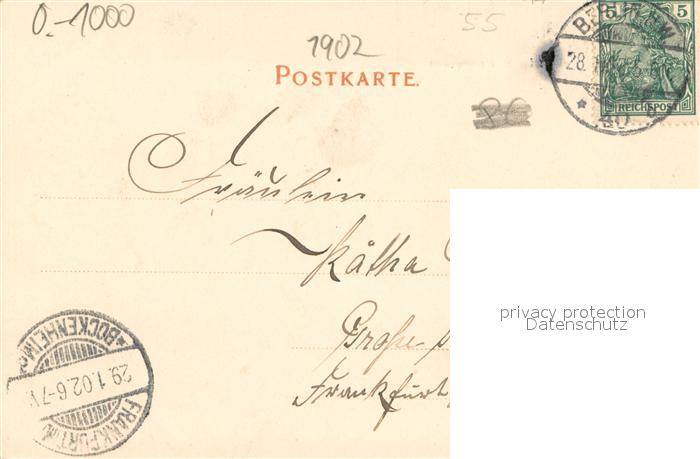 0.-1000
1902
55
POSTKARTE.
5 5
REICHSPOST
BERLIN.W
28.1.
40
86
Fräulein
Käthe
Große
Frankfurt
privacy protection
Datenschutz
FRANKFURT(M.
*BOCKENHEIM
29.1.02.6-7V.